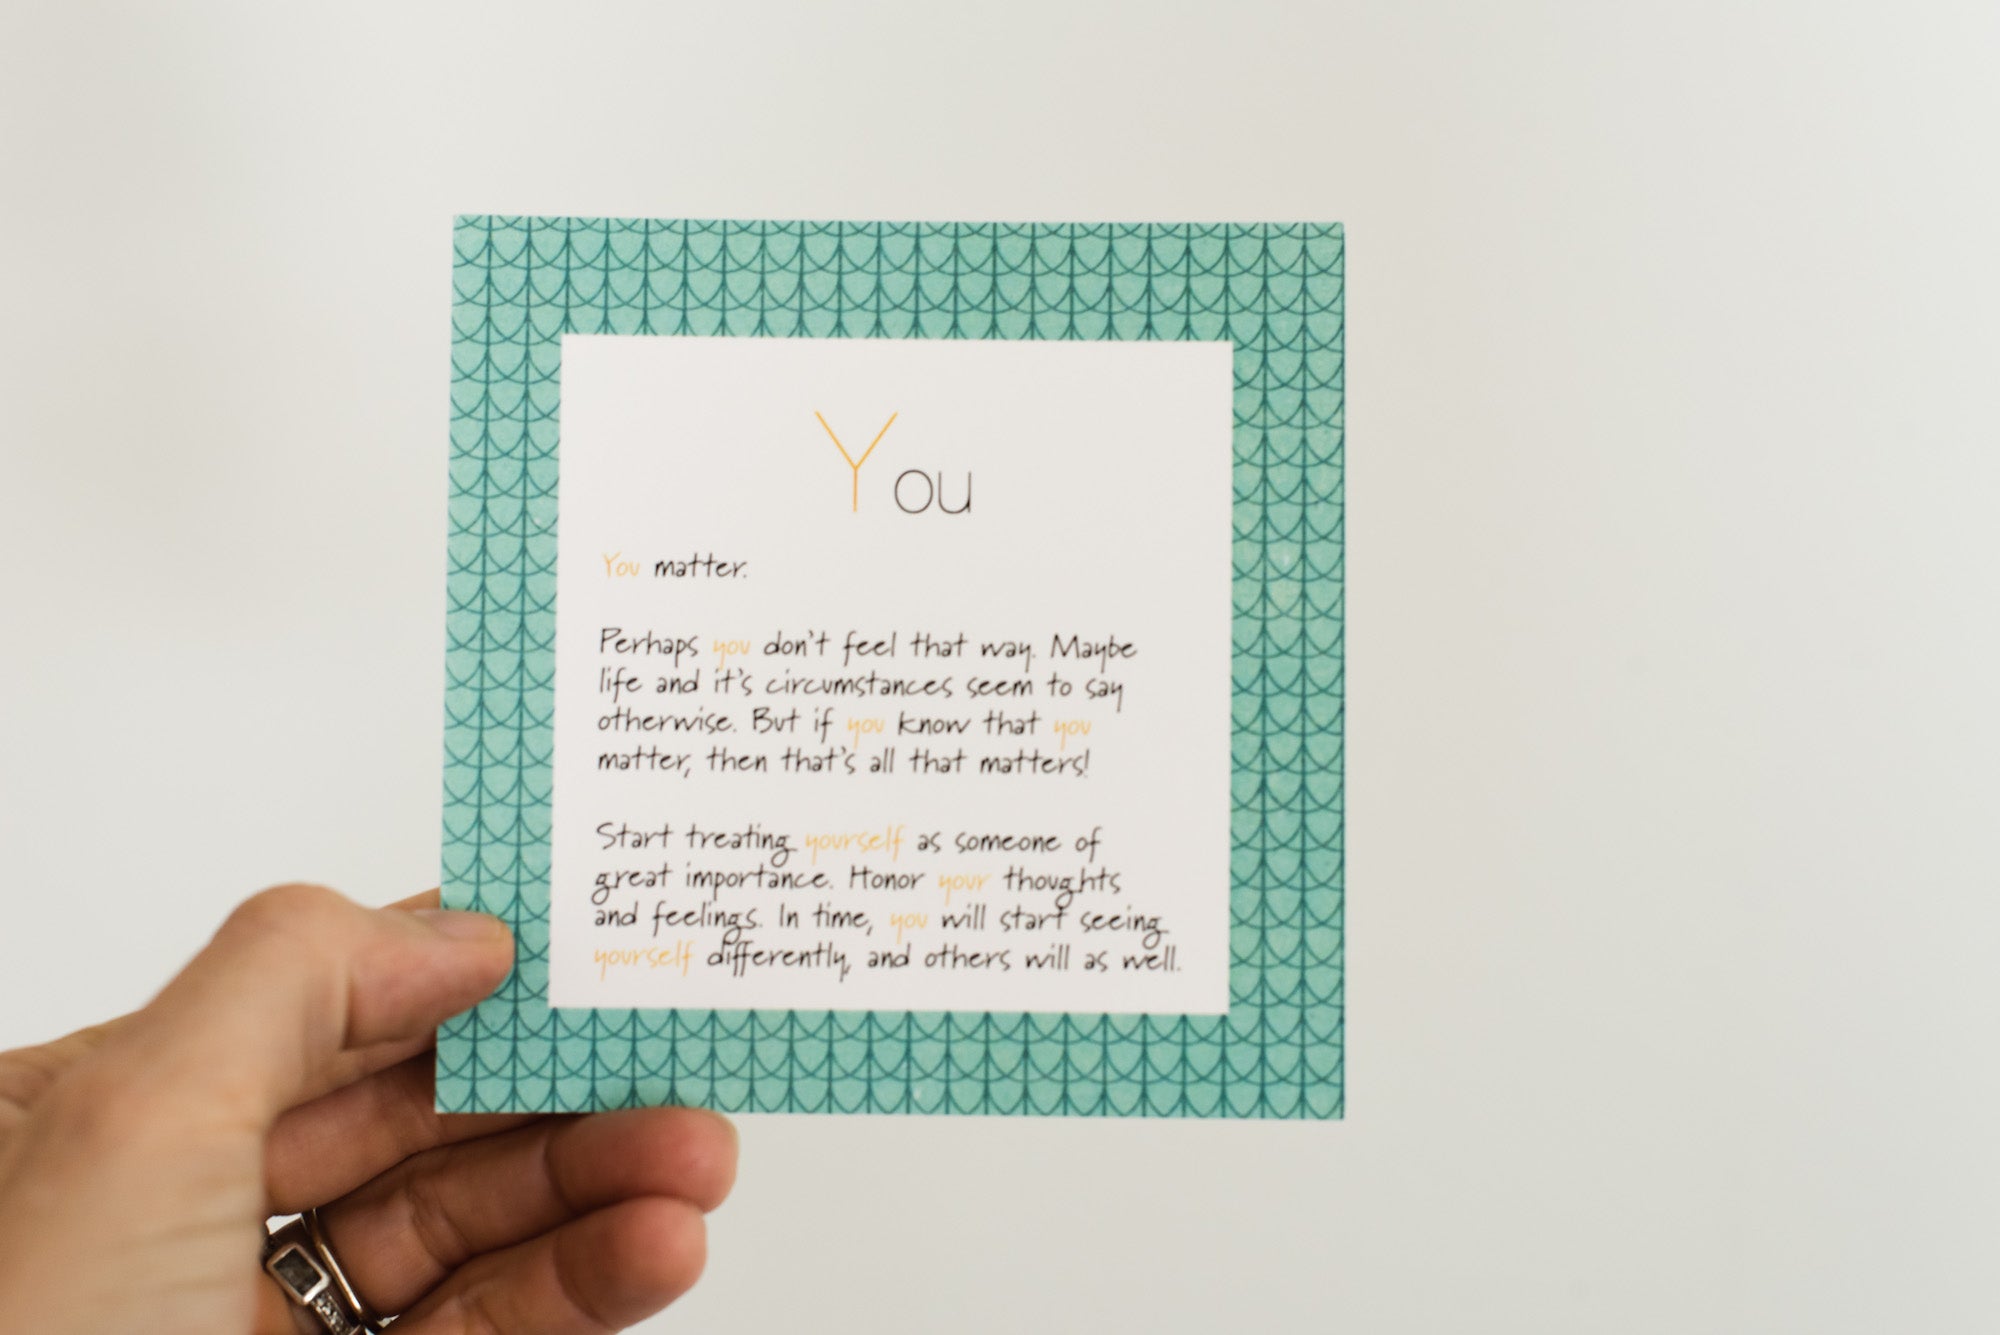 You
You matter.
Perhaps you don't feel that way. Maybe
life and it's circumstances seem to say
otherwise. But if you know that you
matter, then that's all that matters!
Start treating yourself as someone of
great importance. Honor your thoughts
and feelings. In time, you will start seeing
yourself differently, and others will as well.